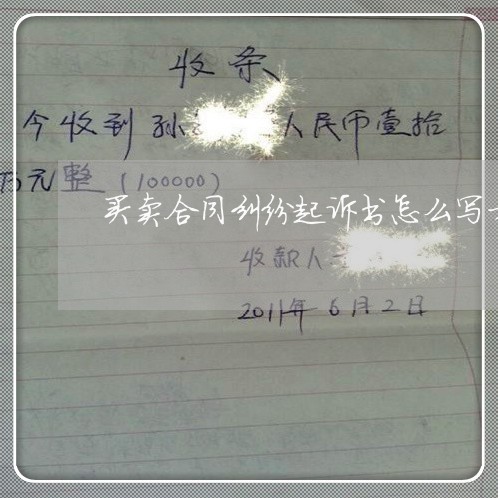 收条
今收到孙 人民币壹拾
万元整(100000)
买卖合同纠纷起诉书怎么写
收款人
2011年6月2日